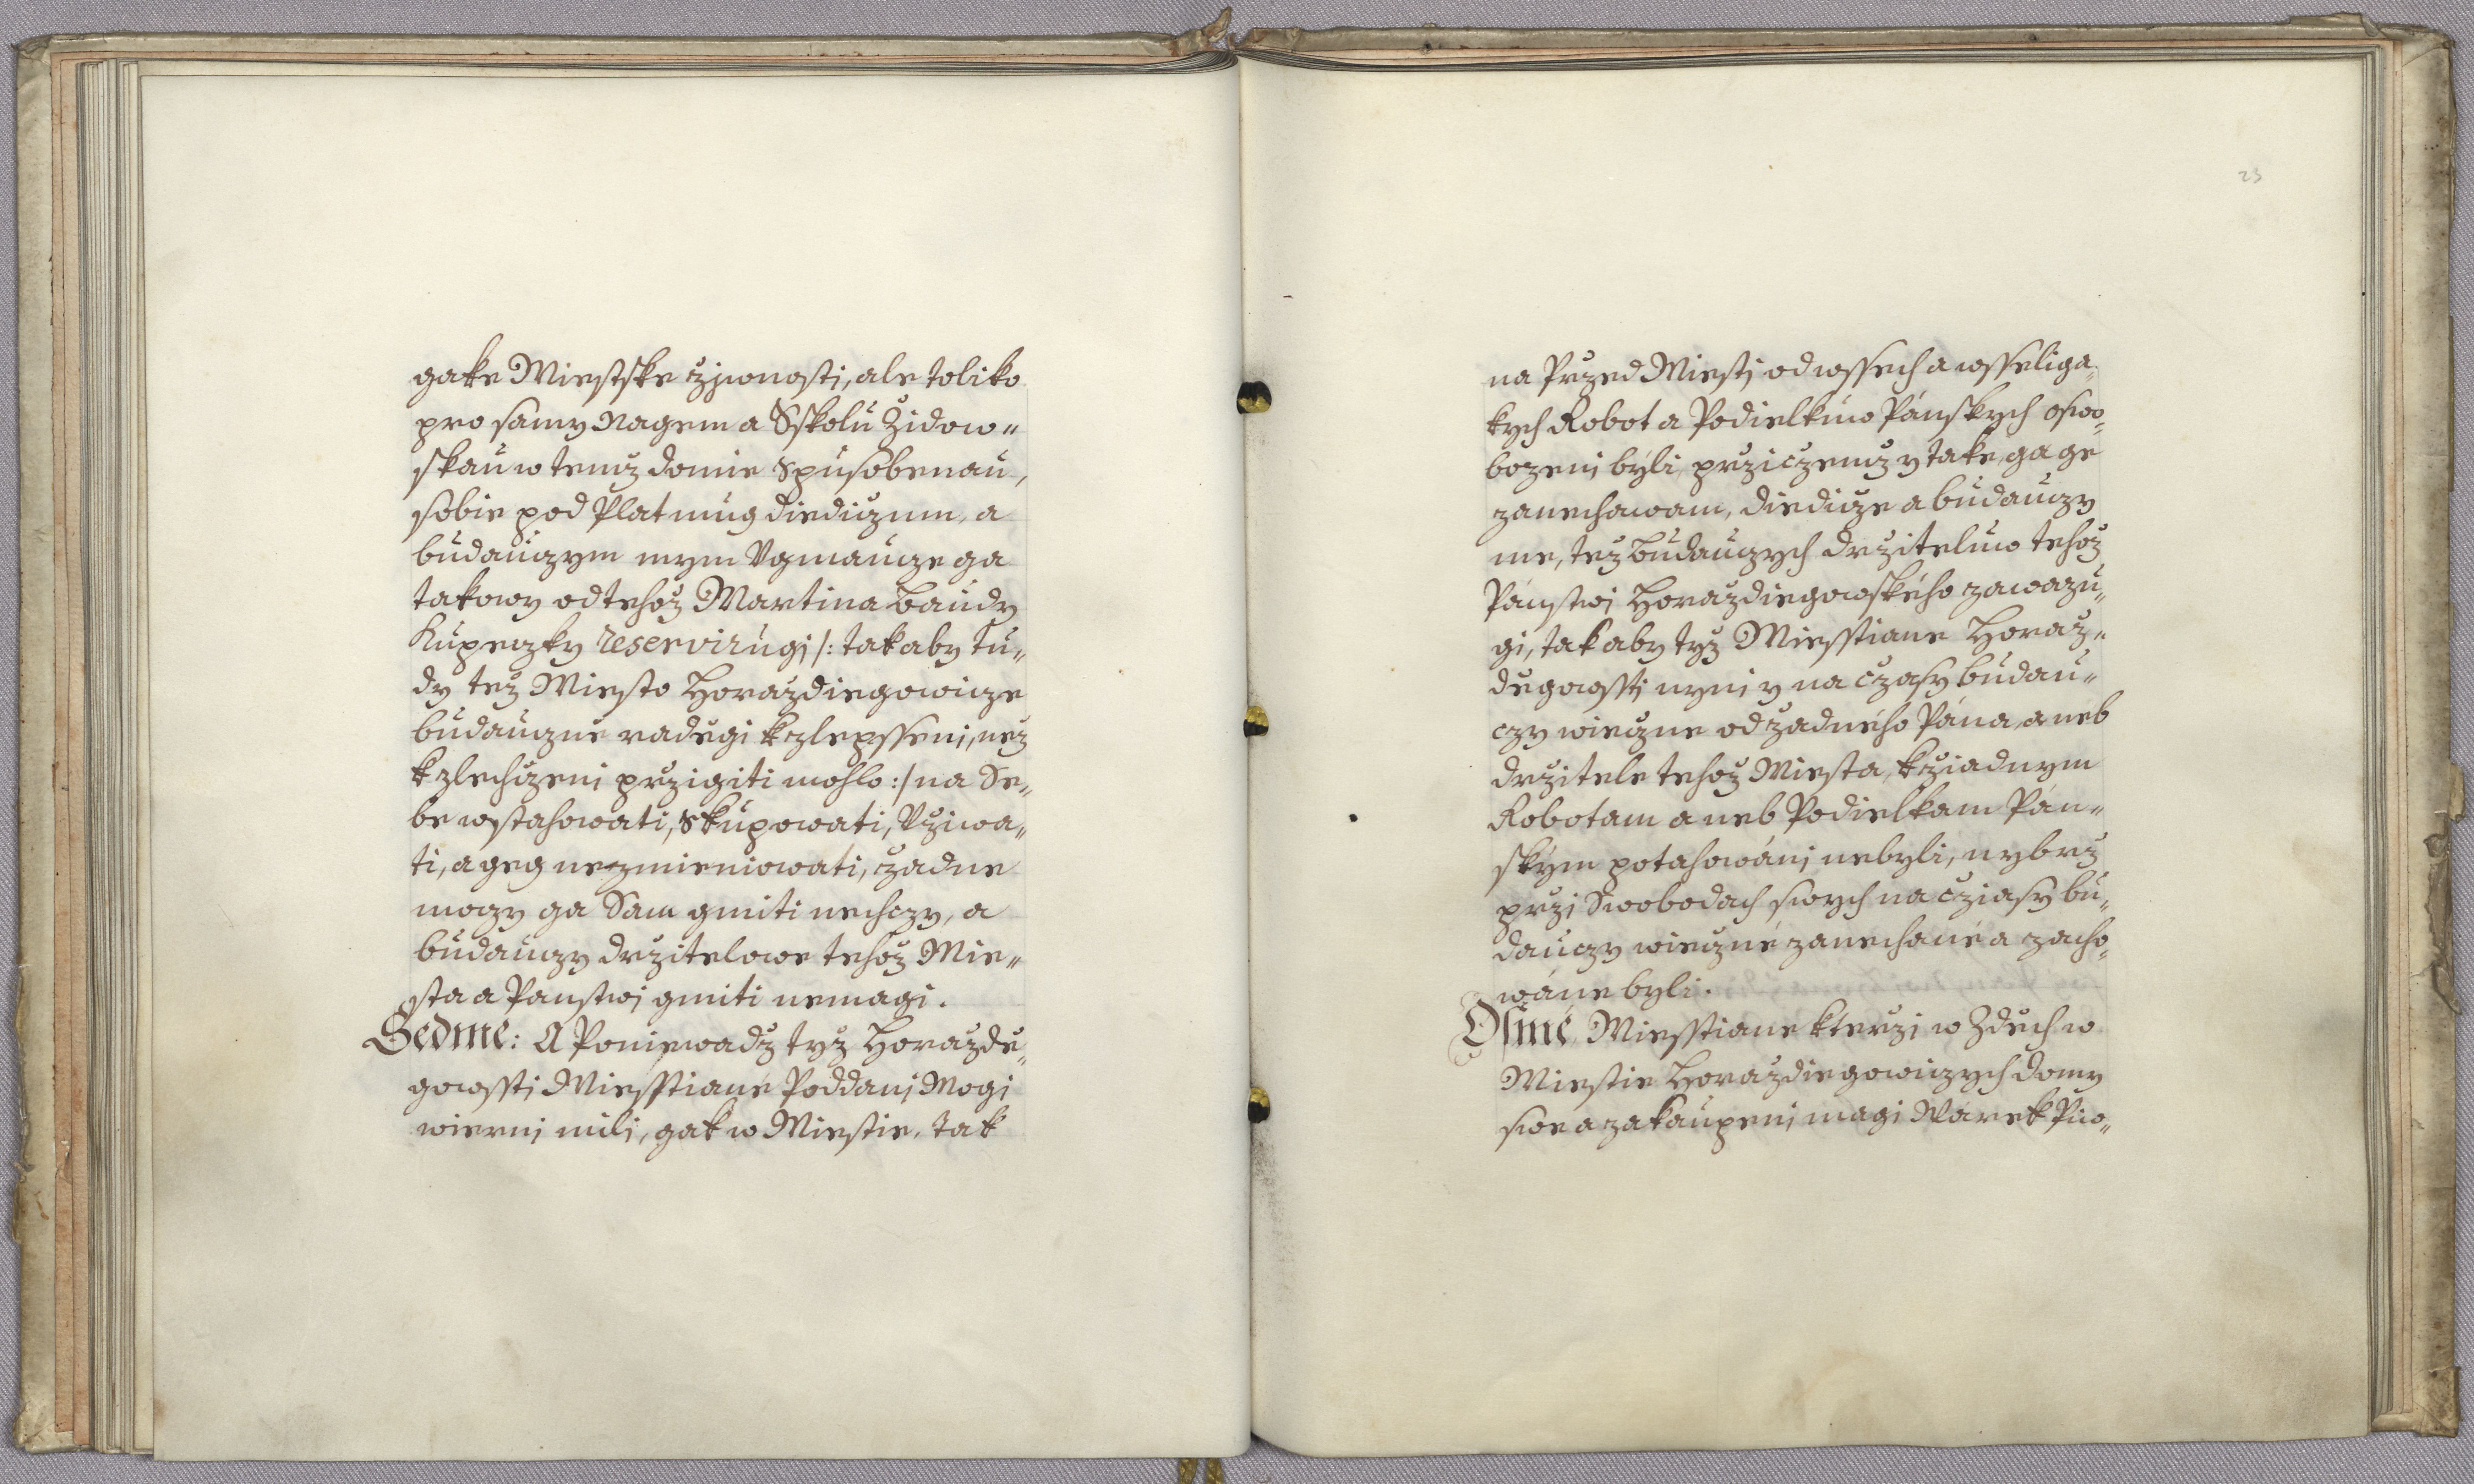 gake Miestske cziwnosti, ale toliko
pro samy Nagem a Sskolu Židow„
skau w temž domie Spusobenau,
sobie pod Platnug diediczum, a
budauczym mym Vgmaucze ga
takowy od tehož Martina Baudy
Kupeczky reservirugi /: tak aby tu„
dy též Miesto Horaždiegowicze
budaucznie radiegi k zlepsseni, než
k zlehczeni przigiti mohlo :/ na Se„
be wstahowati, Skupowati, Vžiwa„
ti, a geg nezmieniowati, žadne
moczy ga Sam gmiti nechczy, a
budauczy držitelowe tehož Mie„
sta a Panstwi gmiti nemagi.
Sedmé: A Poniewadž tyž Horažde„
gowssti Miesstiané Poddani Mogi
wierni mili, gak w Miestie, tak
23
na Przed Miesti od wssech a wsseliga„
kych Robot a Podielkuw Pánskych oswo„
bozeni byli, przi czemž y také ga ge
zanechawam, diedicze a budauczy
me, též budauczych držiteluw tehož
Pánstwi Horaždiegowského zawazu„
gi, tak aby tyž Miesstiane Horaž„
degowssti nyni y na czasy budau„
czy wieczne od žadného Pána, aneb
držitele tehož Miesta, k žiadnym
Robotam aneb Podielkam Pán„
ským potahowáni nebyli, nybrž
przi Swobodach swych na cziasy bu„
dauczy wieczné zanechané a zacho„
wáne byli.
Osmé, Miesstiane kterzi w Zdech w
Miestie Horaždiegowiczych domy
swe a zakaupeni magi Várek Piw„